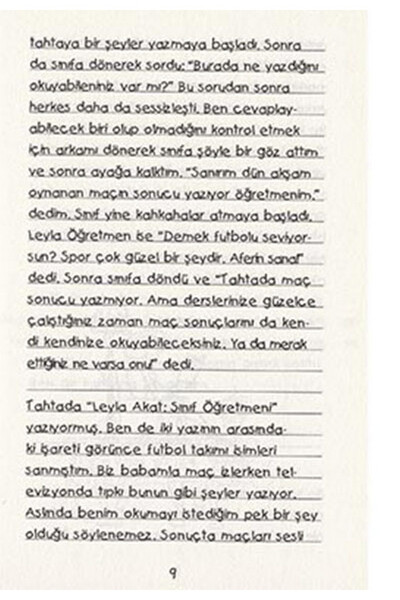 tahtaya bir şeyler yazmaya başladı. Sonra
da sınıfa dönerek sordu: "Burada ne yazdığını
okuyabileniniz var mı?" Bu sorudan sonra
herkes daha da sessizleşti. Ben cevaplay-
abilecek biri olup olmadığını kontrol etmek
için arkamı dönerek sınıfa şöyle bir göz attım
ve sonra ayağa kalktım. "Sanırım dün akşam
oynanan maçın sonucu yazıyor öğretmenim."
dedim. Sınıf yine kahkahalar atmaya başladı.
Leyla Öğretmen ise "Demek futbolu seviyor-
sun? Spor çok güzel bir şeydir. Aferin sana!"
dedi. Sonra sınıfa döndü ve "Tahtada maç
sonucu yazmıyor. Ama derslerinize güzelce
çalıştığınız zaman maç sonuçlarını da ken-
di kendinize okuyabileceksiniz. Ya da merak
ettiğiniz ne varsa onu!" dedi.
Tahtada "Leyla Akat: Sınıf Öğretmeni"
yazıyormuş. Ben de iki yazının arasında-
ki işareti görünce futbol takımı isimleri
sanmıştım. Biz babamla maç izlerken tel-
evizyonda tıpkı bunun gibi şeyler yazıyor.
Aslında benim okumayı istediğim pek bir şey
olduğu söylenemez. Sonuçta maçları sesli
9